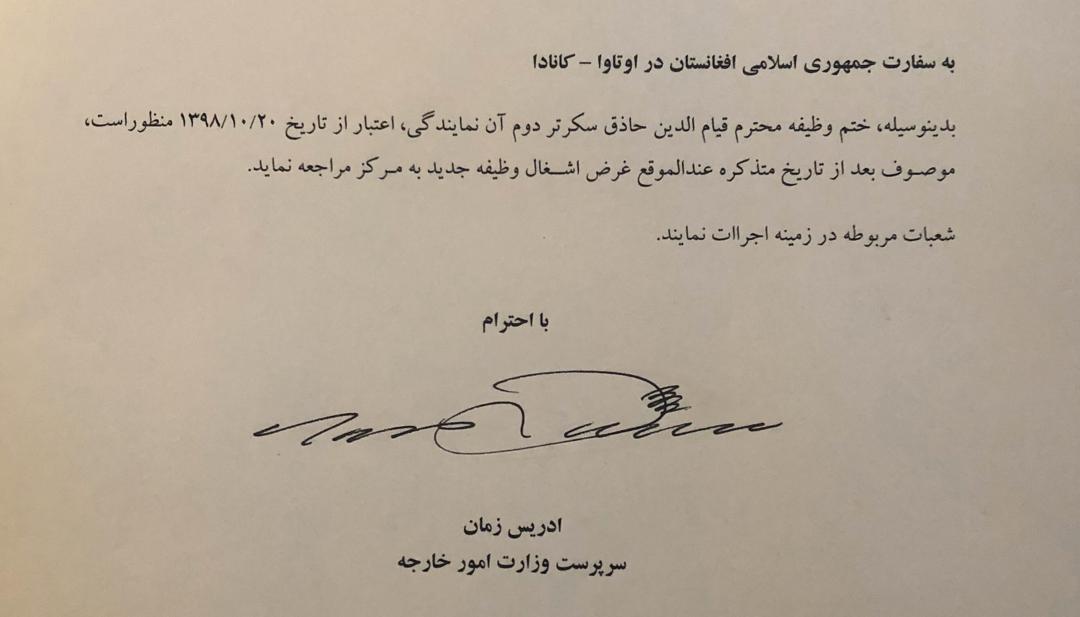 به سفارت جمهوری اسلامی افغانستان در اوتاوا – کانادا
بدینوسیله، ختم وظیفه محترم قیام الدین حاذق سکرتر دوم آن نمایندگی، اعتبار از تاریخ ۱۳۹۸/۱۰/۲۰ منظوراست،
موصوف بعد از تاریخ متذکره عندالموقع غرض اشغال وظیفه جدید به مرکز مراجعه نماید.
شعبات مربوطه در زمینه اجراات نمایند.
با احترام
ادریس زمان
سرپرست وزارت امور خارجه